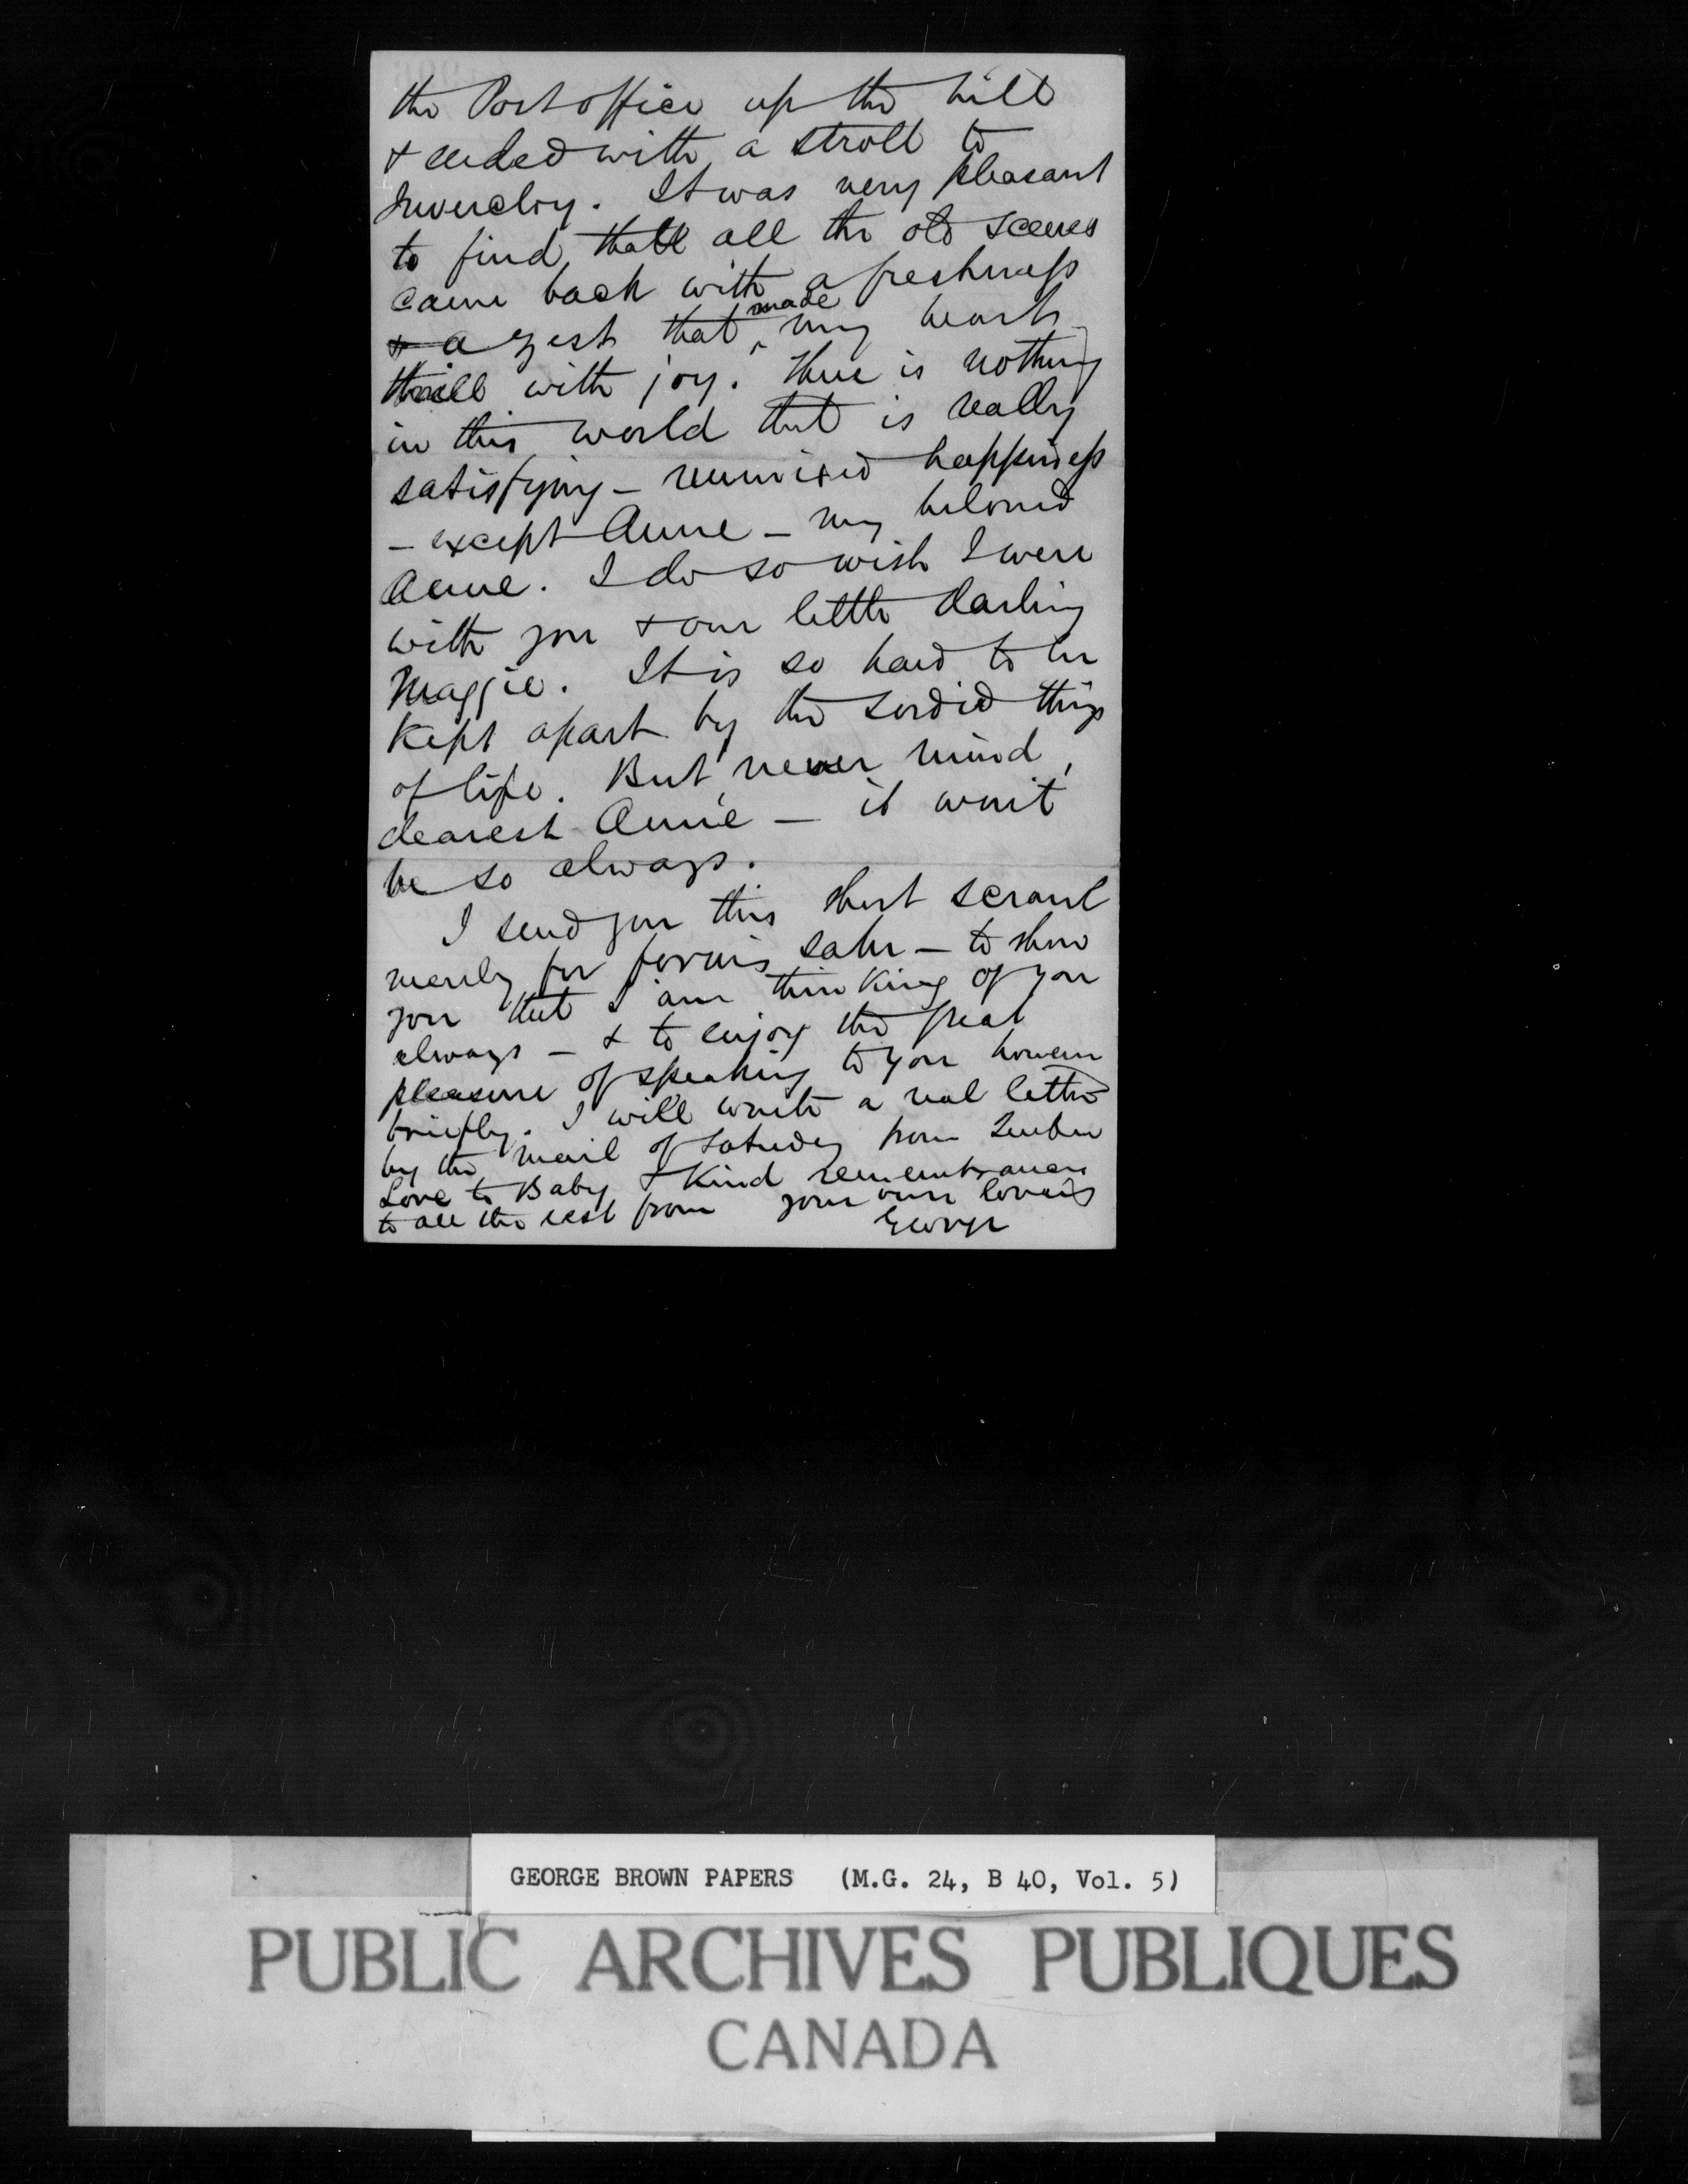 the Post office up the hill
& ended with a stroll to
Invereloy. It was very pleasant
to find that all the old scenes
came back with a freshness
& a zest that made my heart
thrill with joy. There is nothing
in this world that is really
satisfying – unmixed happiness
– except Anne – my beloved
Anne. I do so wish I were
with you & our little darling
Maggie. It is so hard to be
kept apart by the sordid things
of life. But never mind,
dearest Annie – it won't
be so always.
I send you this short scrawl
merely for form's sake – to show
you that I am thinking of you
always – & to enjoy the great
pleasure of speaking to you however
briefly. I will write a real letter
by the mail of Saturday from Quebec
Love to Baby & kind remembrances
to all the rest from your own loving
George
GEORGE BROWN PAPERS (M.G. 24, B 40, Vol. 5)
PUBLIC ARCHIVES PUBLIQUES
CANADA